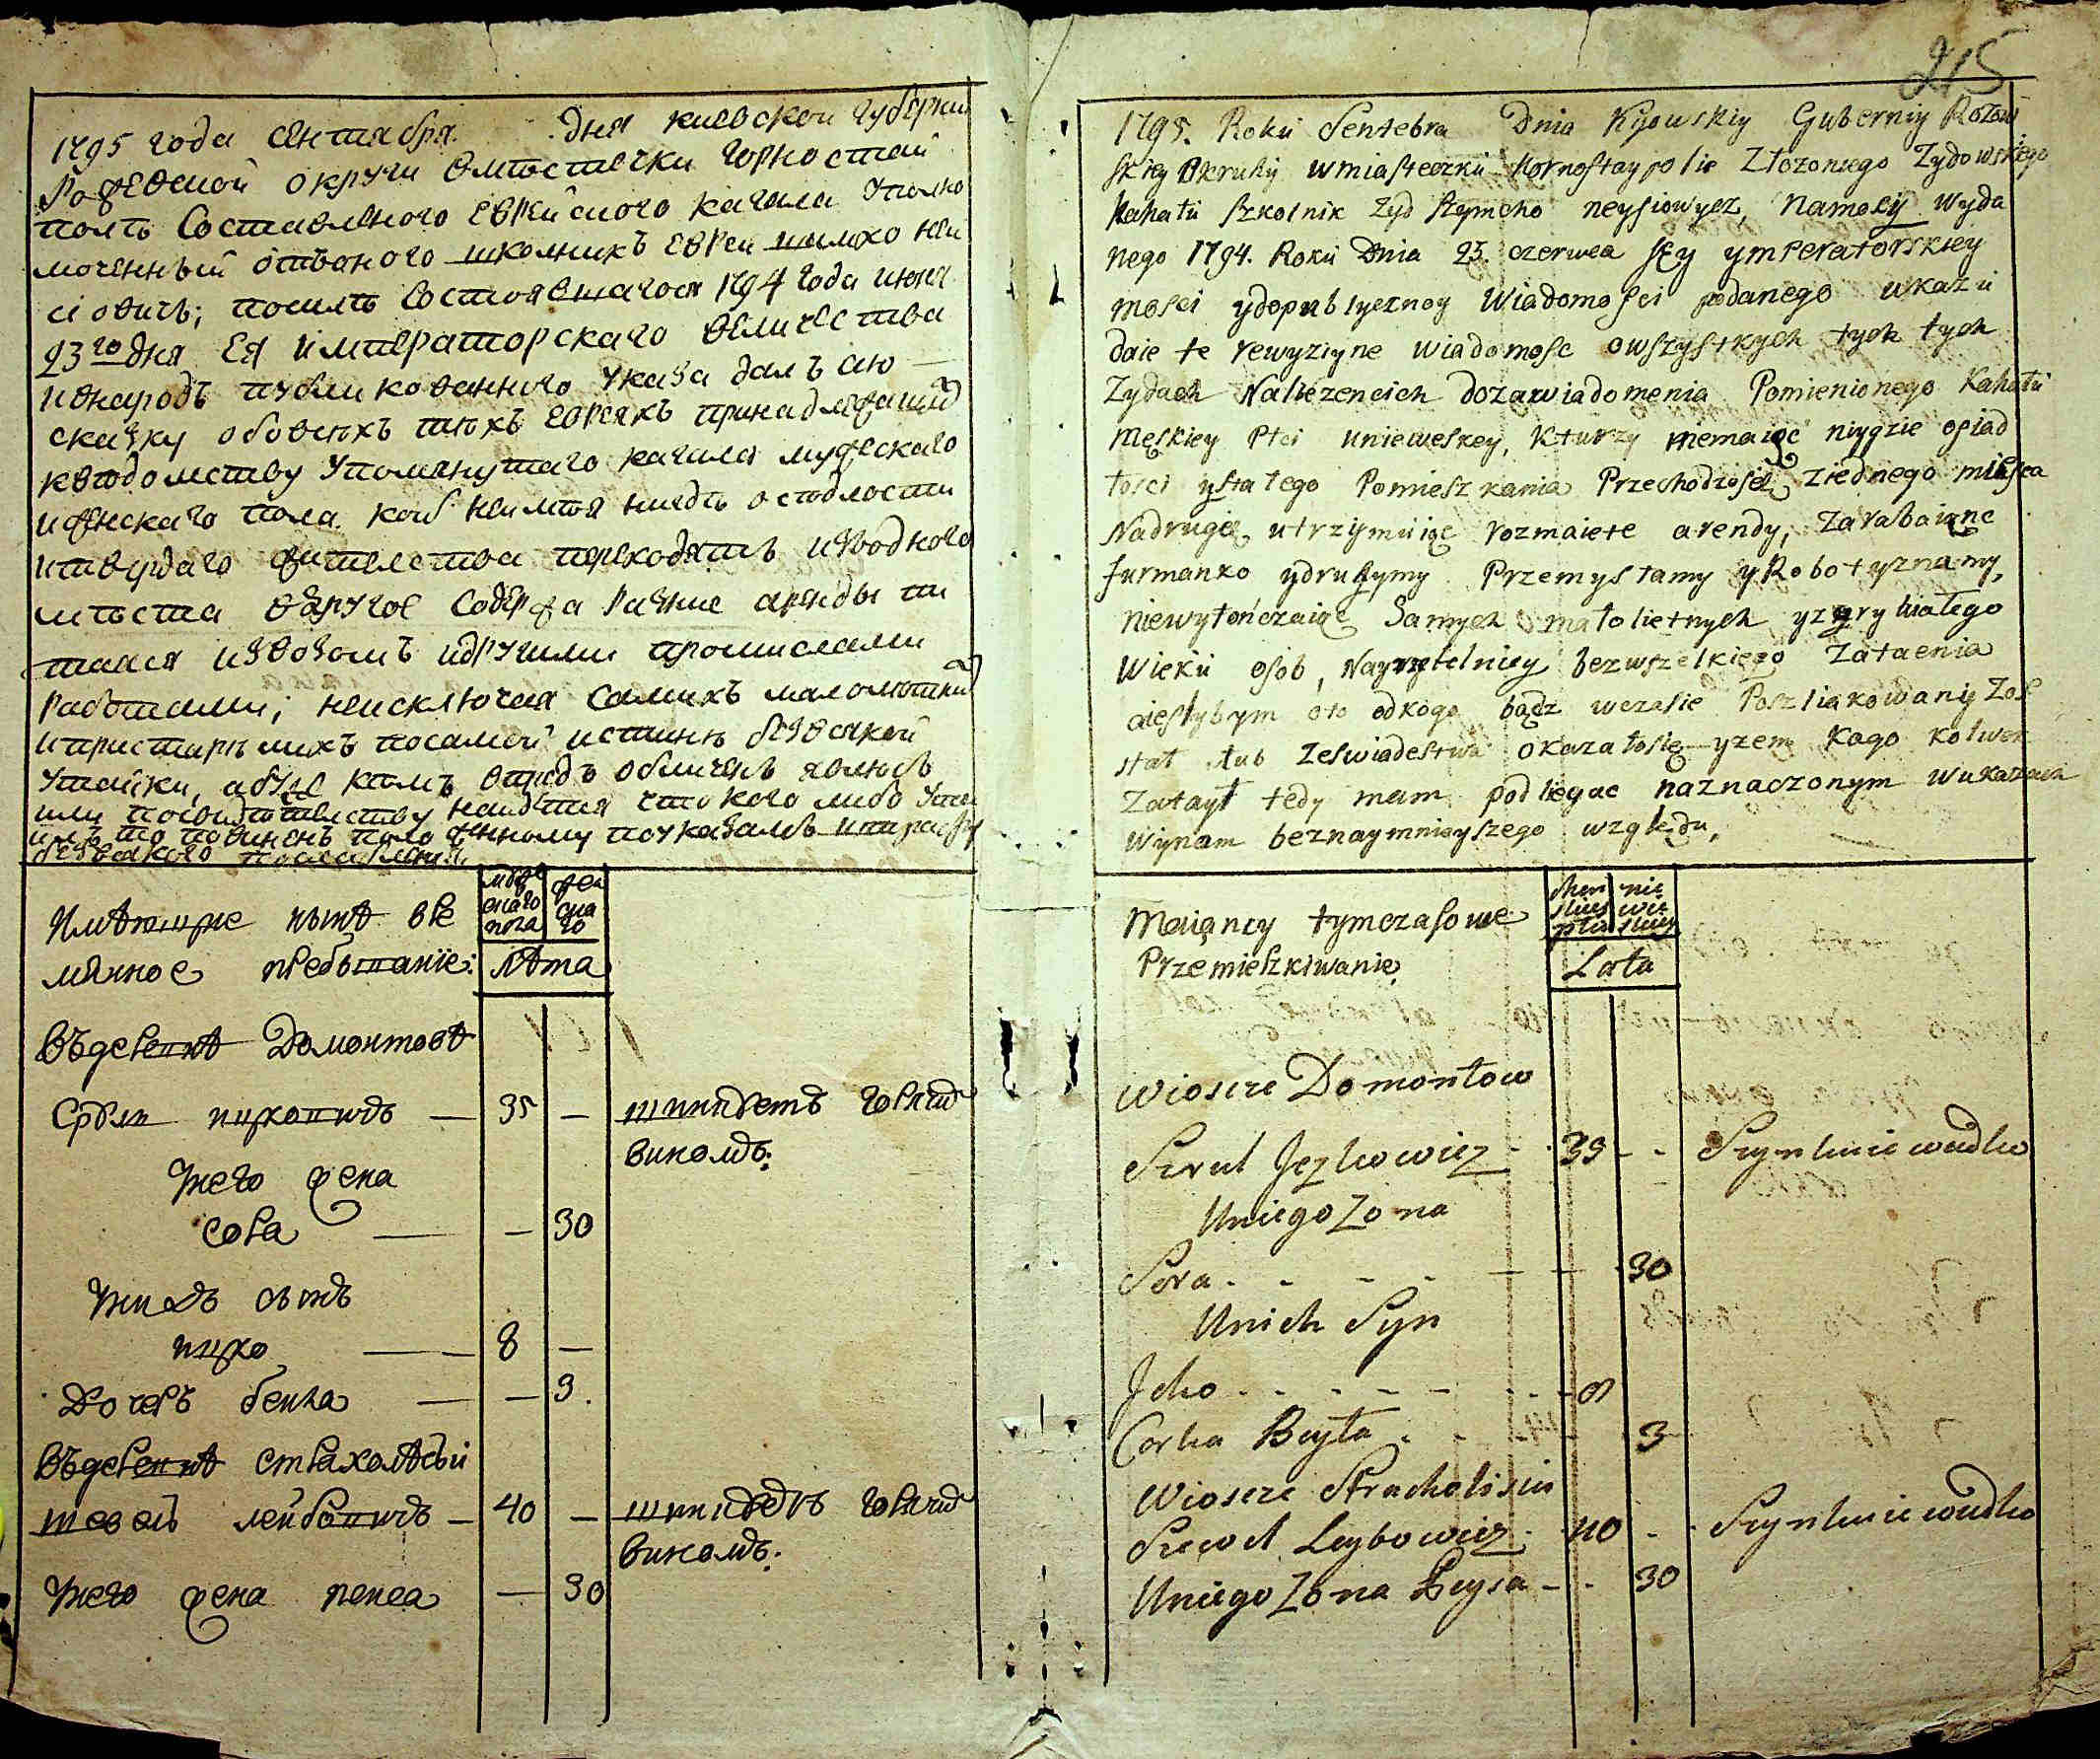 1795 года сентября дня киевской губернии
Рожевской округи вмѣстечки Горностай
полѣ Составленого Еврейского кагала Уполно
моченный отъоного школникъ еврей шимхо ней
сіовичъ; посилѣ Состоявшагося 1794 года июня
23го дня Ея Императорскаго величества
ивнародъ публикованного указа далъ сию
скаску обовсѣхъ тѣхъ евреяхъ принадлежащих
квѣдомству Упомянутаго кагала мужескаго
иженскаго пола кои неимѣя нигдѣ оседлости
итвердаго жителства переходятъ изъодного
мѣста вдругое Содержа Разние аренды пи
таяся извозомъ идругими промислами
Работами; неисключая самихъ малолѣтних
ипристарѣлихъ посамой истиннѣ безвсякой
Утайки, абуде кѣмъ впредъ обличенъ явлюсь
или посвидѣтелству найдется что кого либо Ута
илъ то повиненъ положенному поуказамъ штрафу
безвсякого послабленія
Имѣющие нынѣ вре
мянное пребываніе:
муже
скаго
пола
жен
ска
го
Лѣта
Въдеревнѣ Домонтовѣ
Сруль ицковичъ — 35 — шинкуетъ горячимъ
виномъ:
Унего жена
Сора — — 30
Унихъ сынъ
ицко — 8 —
Дочеръ беила — — 3.
Въдеревнѣ страхолѣсьи
шевель лейбовичъ — 40 — шинкуетъ горячимъ
виномъ.
Унего жена — 30
215
1795. Roku Sentebra Dnia Kijowskiy Guberniy Rozow
skiey Okruhy wmiasteczku Hornostaypolie Złozonego Zydowskiego
Kahału szkolnik Zyd Szymcho neysiowycz, Namocy wyda
nego 1794. Roku Dnia 23. czerwca Jey ymperatorskiey
mosci ydopublyczney Wiadomosci podanego ukazu
daie te rewyziyne wiadomosc owszystkych tych tych
Zydach Nalezencich dozawiadomenia Pomienionego Kahału
męskiey Płci unieweskey, Kturzy niemaiąc niygzie osiad
łosci ystałego Pomieszkania Przechodzosc ziednego miesca
Nadrugie utrzymuiąc rozmaiete arendy, zarabaiąnc
furmanko ydrugymy Przemysłamy yRobotyznamy,
niewyłonczaiąc Samych małolietnych yzgrybiałego
Wieku osob, Nayrzetelniey bezwszelkiego Zataenia
aiesłybym oto odkogo bądz wczasie Poszliakowaniy Zos
stał lub zeswiadestwa okazałosię yzem kogo kolwek
Zataył tedy mam podliegac naznaczonym wukazach
Wynam beznaymnieyszego względu,
Maiąncy tymczasowe
Przemieszkiwanie
men
skiey
płci
nie
wie
skiey
Lata
Wioscze Domontow
Szrul Jczkowicz - 35 - - Szynkuie wudko
Uniego Zona
Sora - - - - 30
Unich Syn
Jcko - - - - - 8
Corka Beyła. 3
Wioscze Stracholisiu
Szewel Leybowicz - 40 - - Szynkuie wudko
Uniego Zona Peysa - - 30